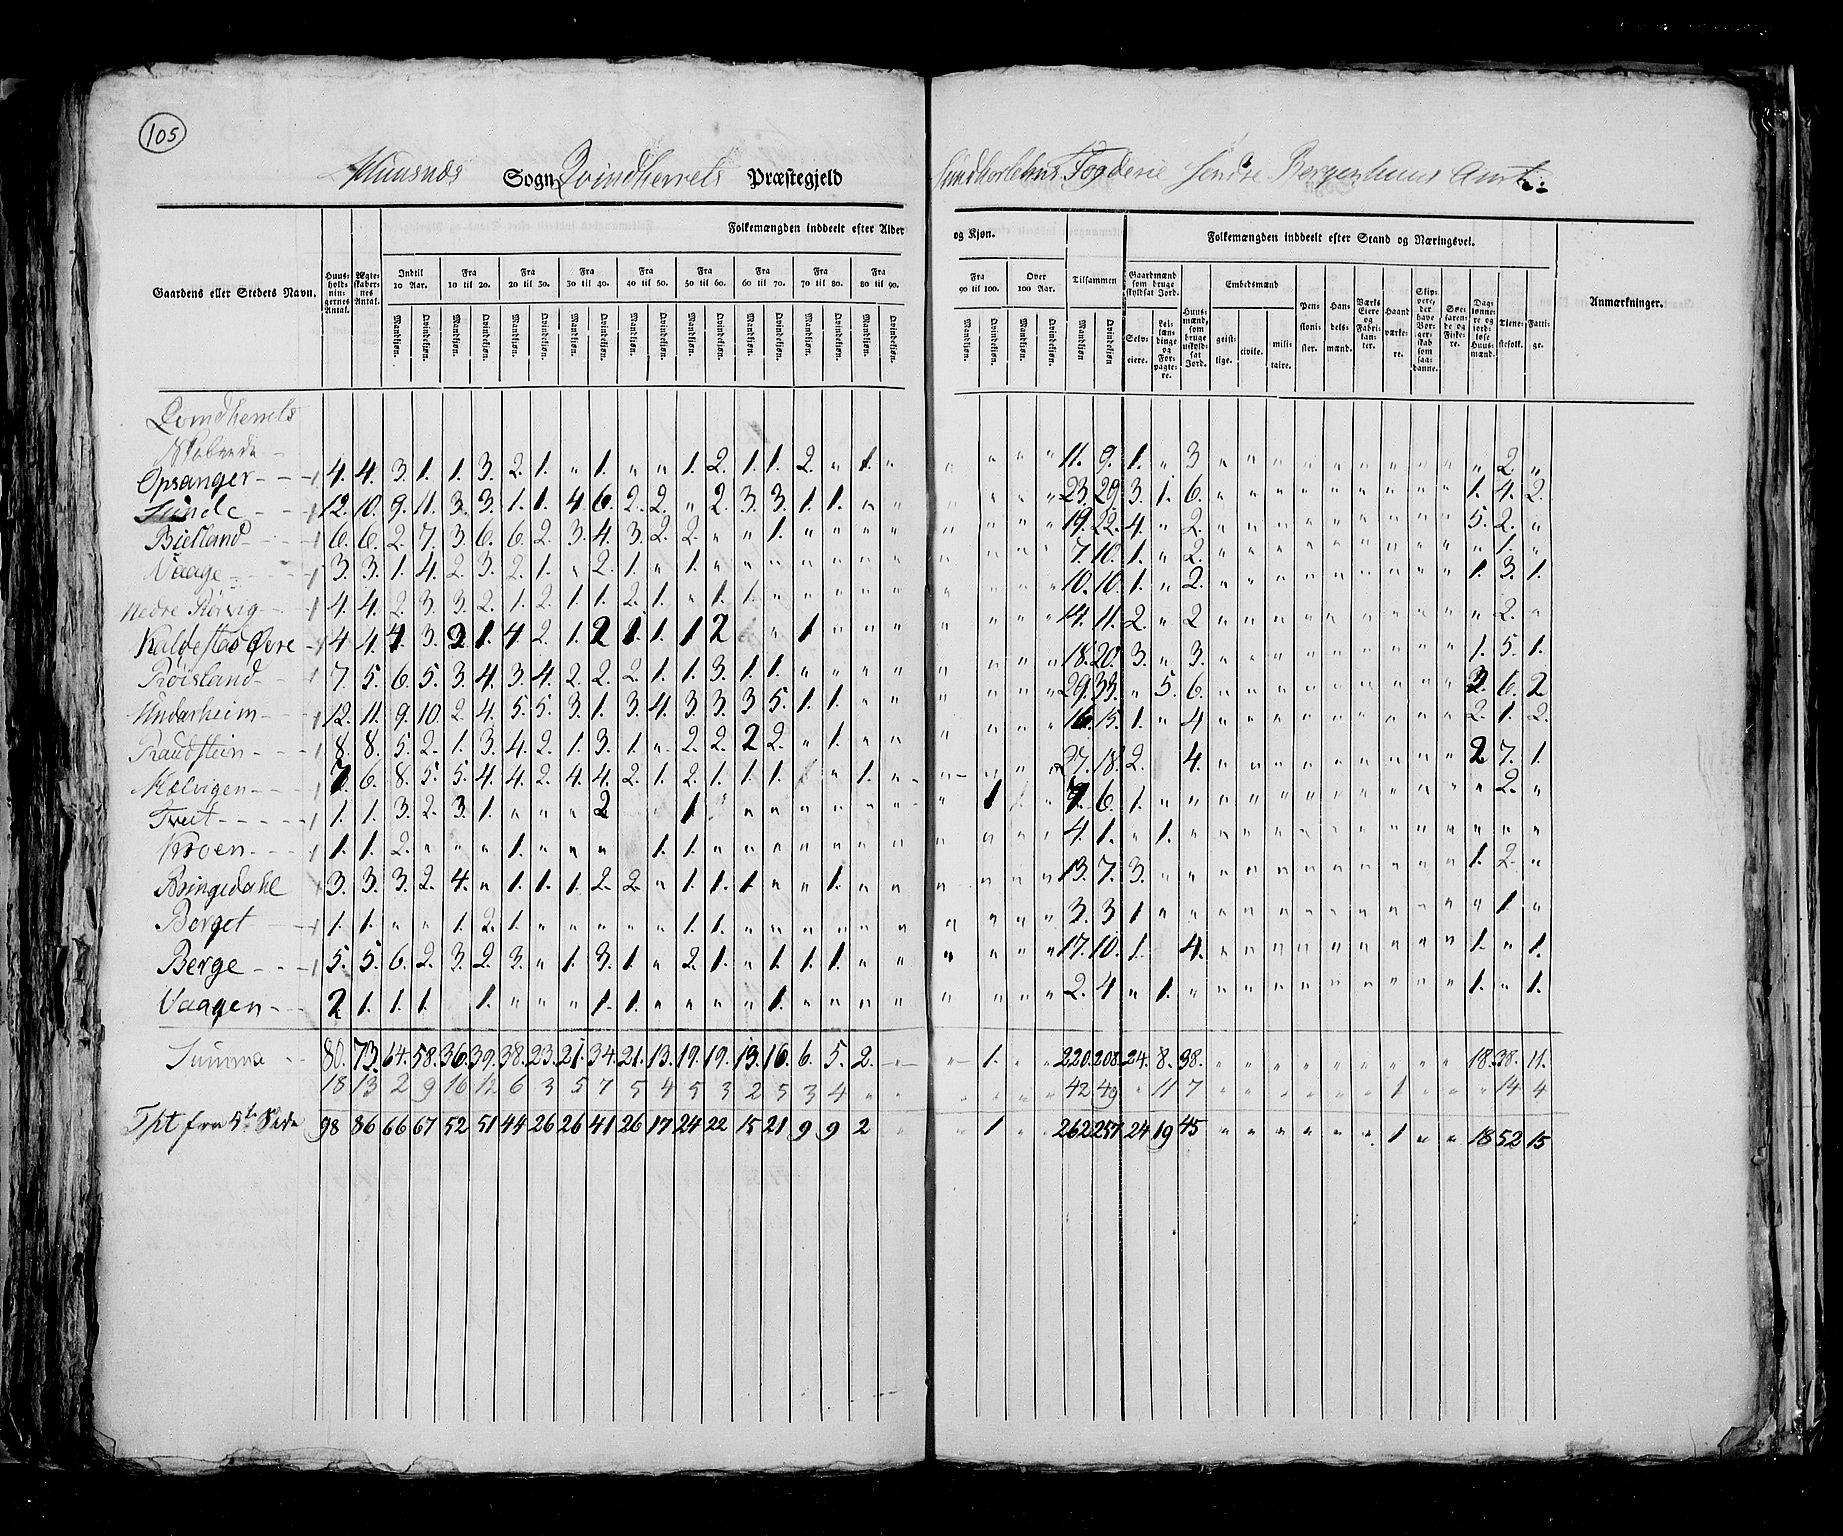 105
Sogn Qvindherrets Præstegjeld Søndhorlehns Fogderie Søndre Bergenhuus Amt.
Folkemængden inddeelt efter Alder og Kjøn. Folkemængden inddeelt efter Stand og Næringsvei.
Gaardens eller Stedets Navn. Huusholdningernes Antal. Ægteskabernes Antal. Indtil 10 Aar. Fra 10 til 20. Fra 20 til 30. Fra 30 til 40. Fra 40 til 50. Fra 50 til 60. Fra 60 til 70. Fra 70 til 80. Fra 80 til 90. Fra 90 til 100. Over 100 Aar. Tilsammen Gaardmænd som bruge skyldsat Jord. Huusmænd, som bruge uskyldsat Jord. Embedsmænd Pensionister. Handelsmænd. Værks Eiere og Fabrikanter. Haandværkere. Skippere, der have Borgerskab som saadanne. Søefarende og Fiskere. Daglønnere og jordløse Huusmænd. Tjenestefolk. Fattige. Anmærkninger.
Mandkjøn. Qvindekjøn. Mandkjøn. Qvindekjøn. Mandkjøn. Qvindekjøn. Mandkjøn. Qvindekjøn. Mandkjøn. Qvindekjøn. Mandkjøn. Qvindekjøn. Mandkjøn. Qvindekjøn. Mandkjøn. Qvindekjøn. Mandkjøn. Qvindekjøn. Mandkjøn. Qvindekjøn. Mandkjøn. Qvindekjøn. Mandkjøn. Qvindekjøn Selveiere. Leilændinge og Forpagtere. geistlige. civile. militaire.
Qvindherrets
Opsanger 4. 4. 3. 1. 1. 3. 2. 1. " 1. " " 1. 2. 1. 1. 2. " 1. " " " " " 11. 9. 1. " 3 " " " " " " " " " " 2 "
Sunde 12. 10. 9. 11. 3. 3. 1. 1. 4 6. 2. 2. " 2. 3. 3. 1. 1. " " " " " " 23. 29 3. 1. 6. " " " " " " " " " 1. 4. 2.
Bielland 6. 6. 2. 7. 3. 6. 6. 2. 3. 4. 3. 2. 2. " " 1. " " " " " " " " 19. 22. 4. " 2. " " " " " " " " " 5. 2. "
Vaage 3. 3. 1. 4. 2. 3. 2. 1. " 2. 1. " 1. " " " " " " " " " " " 7. 10. 1. " 2. " " " " " " " " " " 1. "
Nedre Rørvig 4. 4. 2. 3. 3. 2. 1. 2. 1. 1. 2. 1. " 1. 1. " " " " " " " " " 10. 10. 1. " 2. " " " " " " " " " 1. 3. 1.
Kaldestad Øvre 4 4. 4. 3. 2 1. 4 2. 1. 2 1. 1. 1 2 " 1 " " " " " " " 14. 11. 2. " 2 " " " " " " " " " " 2. "
Røisland 7. 5. 6. 5. 3. 4. 3. 4. 2. 2. 2. 1. 1. 3. 1. 1. " " " " " " " " 18. 20. 3. " 3. " " " " " " " " " 1. 5. 1.
Undarheim 12. 11. 9. 10. 2. 4. 5. 5. 3. 1. 3. 4. 3. 3. 3 5. 1. 1. " " " " " " 29. 33. " 5. 6. " " " " " " " " " 2. 6. 2
Raudstein 8. 8. 5. 2. 1. 3. 4. 2. 1. 3. 1. " 2. 2. 2 2. " 1. " " " " " " 16. 15. 1. " 4 " " " " " " " " " 2. 1. 2.
Mælvigen 7. 6. 8. 5. 5. 4. 4. 2. 4. 4. 2. 1. 2. 1. 1. 1. " 1. " " " " " 27. 18. 2. 4. " " " " " " " " " 2 7. 1.
Tveit 1. 1. 3. 2. 3. 1. " " " 2 1 " " " " " " " 1 " " 7. 6. 1. " " " " " " " " " " " " 2. "
Kroen 1. 1. 2. " " " 1. " " " 1. 1. " " " " " " " " " " " 4. 1. " 1. " " " " " " " " " " " " "
Bringedahl 3. 3. 3. 2. 4. " 1. 1. 1. 2. 2. " 1. 1. 1. " " 1. " " " " " " 13. 7. 3. " " " " " " " " " " 1. 2. "
Berget 1. 1. " " 1. 2. 1. " " " " " 1. 1. " " " " " " " " " " 3. 3 1. " " " " " " " " " " " " 1 "
Berge 5. 5. 6. 2. 3. 2. 3. " 1. 3. 1. " 2. 1. " 1. 1. 1. " " " " " " 17. 10. 1. 4. " " " " " " " " " 1. " 1.
Vaagen 2 1. 1. 1. 1. " " " 1. 1. " " " " 1. " " " " " " " " 2. 4 " 1. " " " " " " " " " " 1. " 1.
Summa 80. 73. 64. 58. 36. 39. 38. 23. 21. 34. 21. 13. 19. 19. 13. 16. 6. 5. 2. " " 1. " " 220. 208. 24. 8. 38. " " " " " " " " " 18. 38. 11.
18 13 2 9 16 12 6 3 5 7 5 4 5 3 2 5 3 4 " " " " " " 42 49 " 11 7 " " " " " " 1 " " " 14 4
Tpt fra 5te Side 98 86 66 67 52 51 44 26 26 41 26 17 24 22 15 21 9 9 2 " " 1 " " 262 257 24 19 45 " " " " " " 1 " " 18 52 15